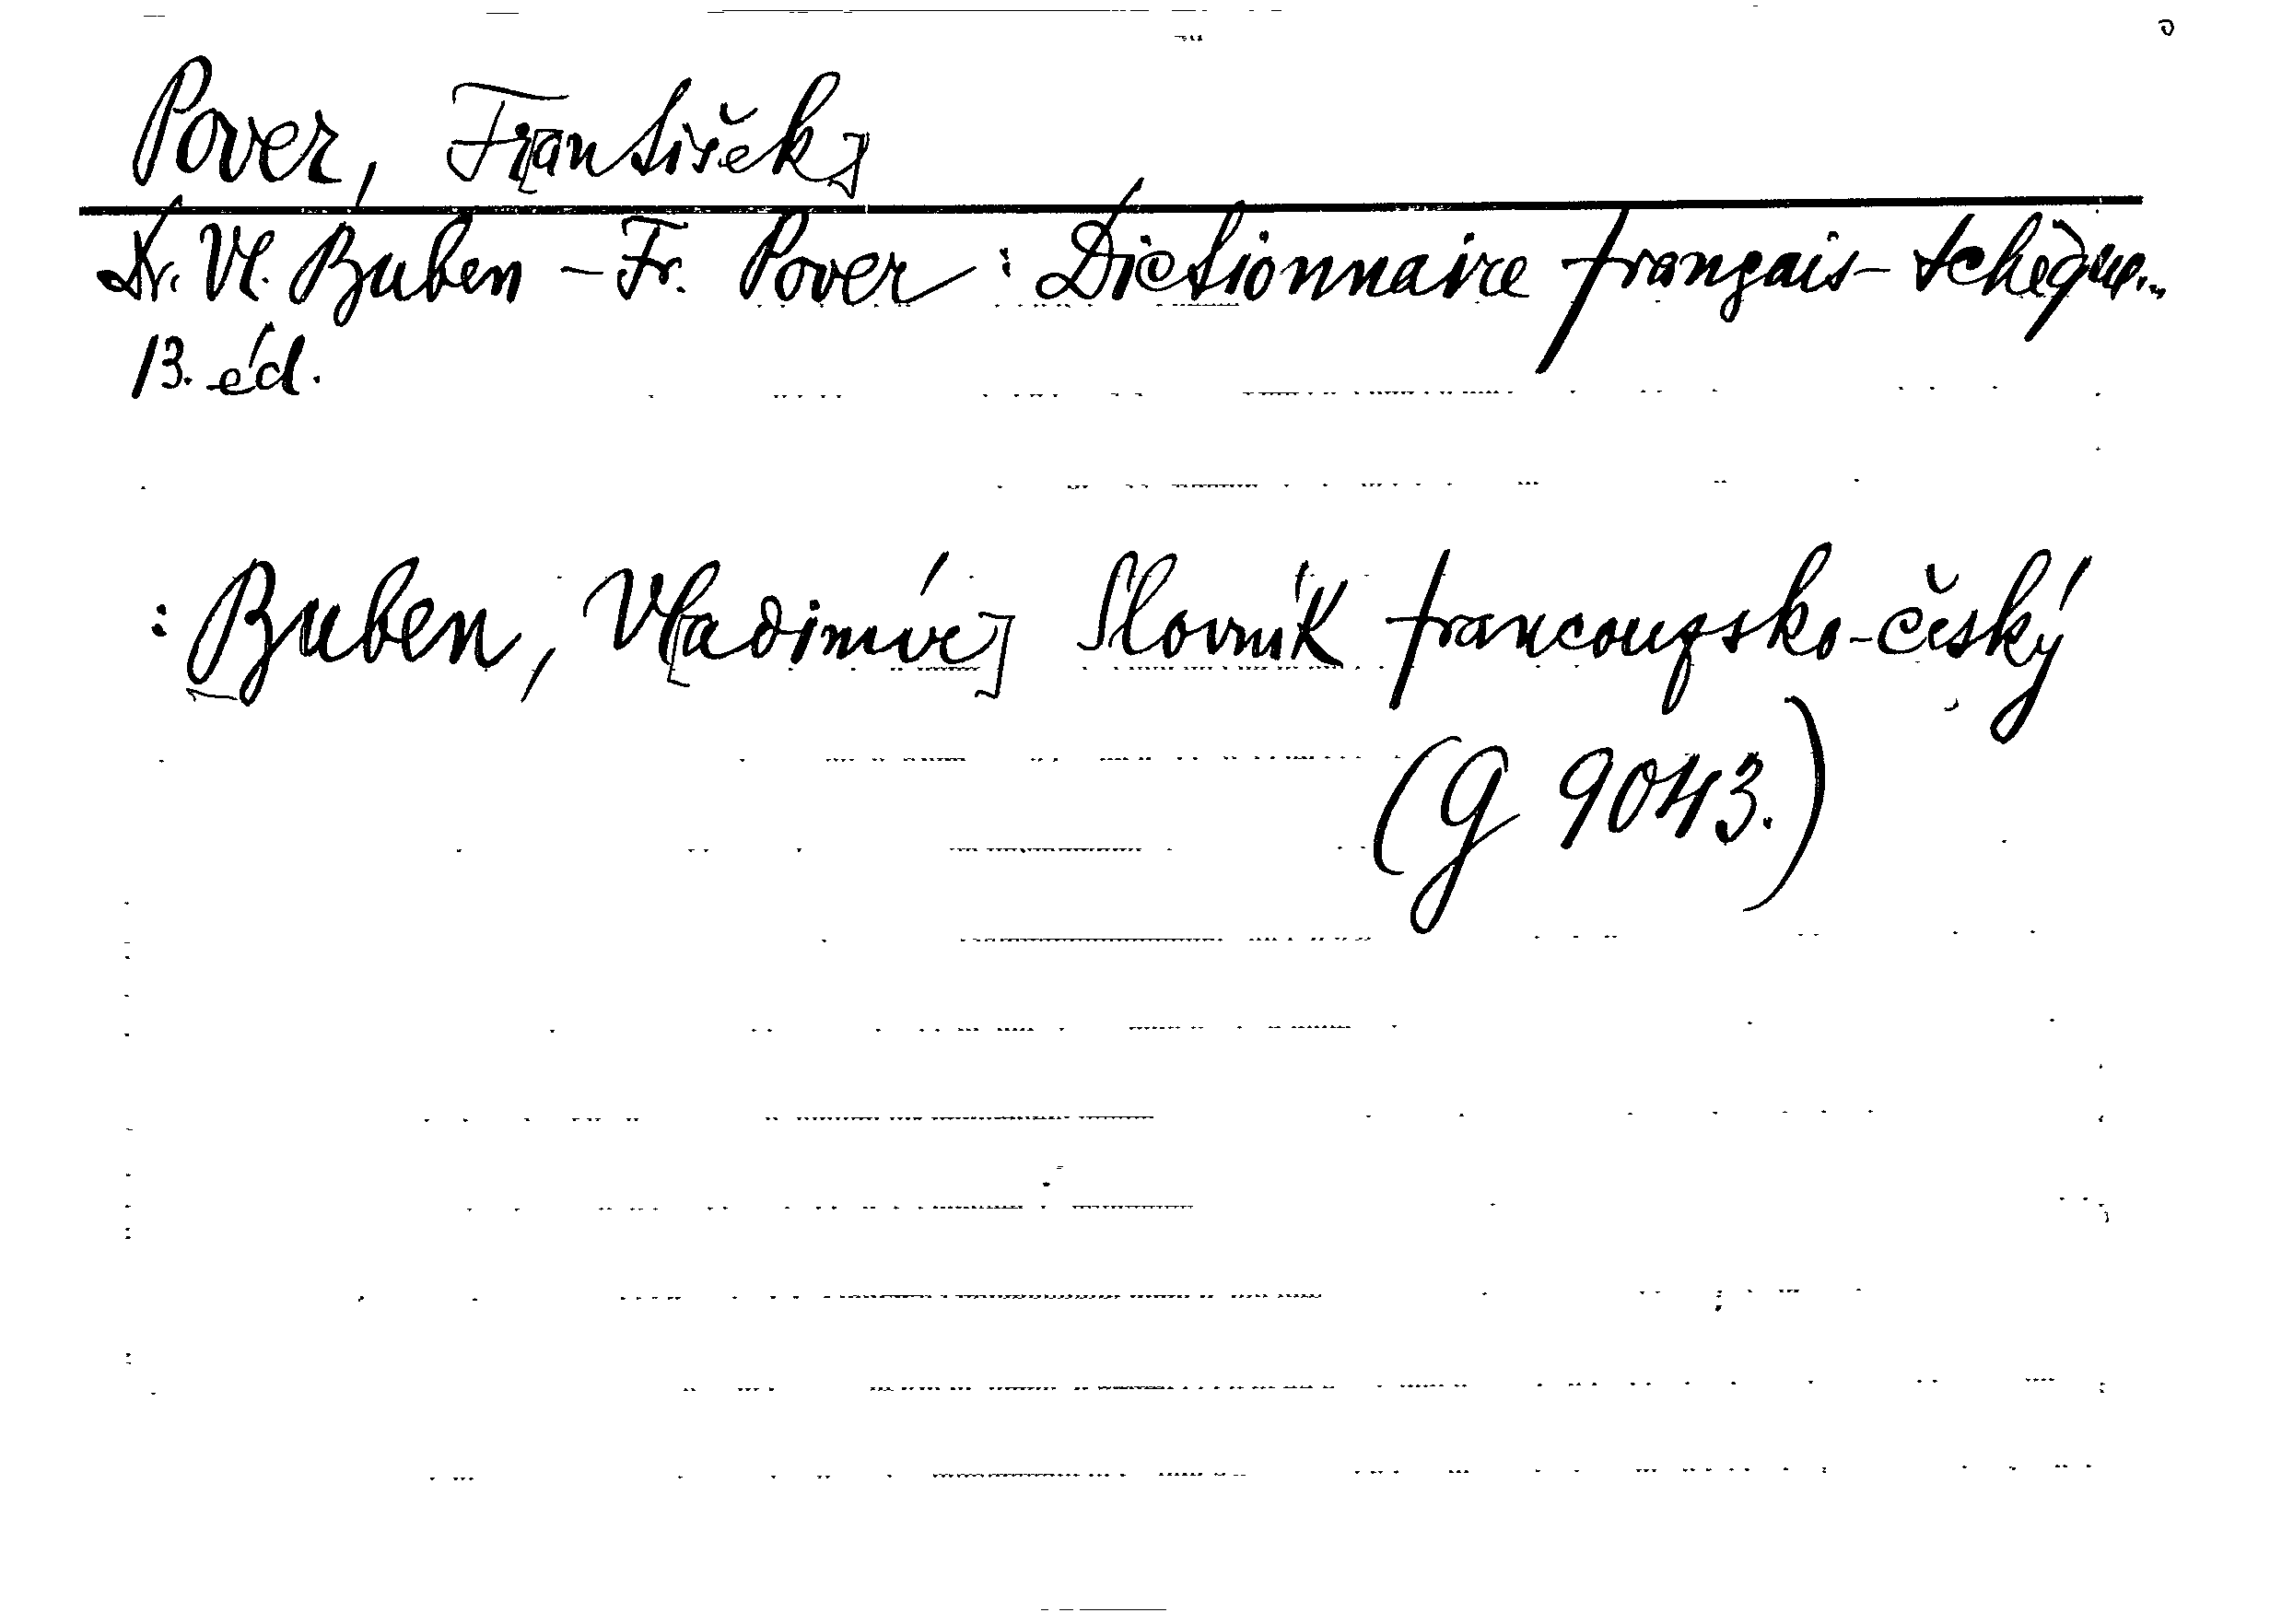 Pover, Fr[antišek]
Dr. Vl. Buben - Fr. Pover: Dictionnaire français-tchèque...
13. éd.
: Buben, Vl[adimír] Slovník francouzsko-český
(G 9043.)